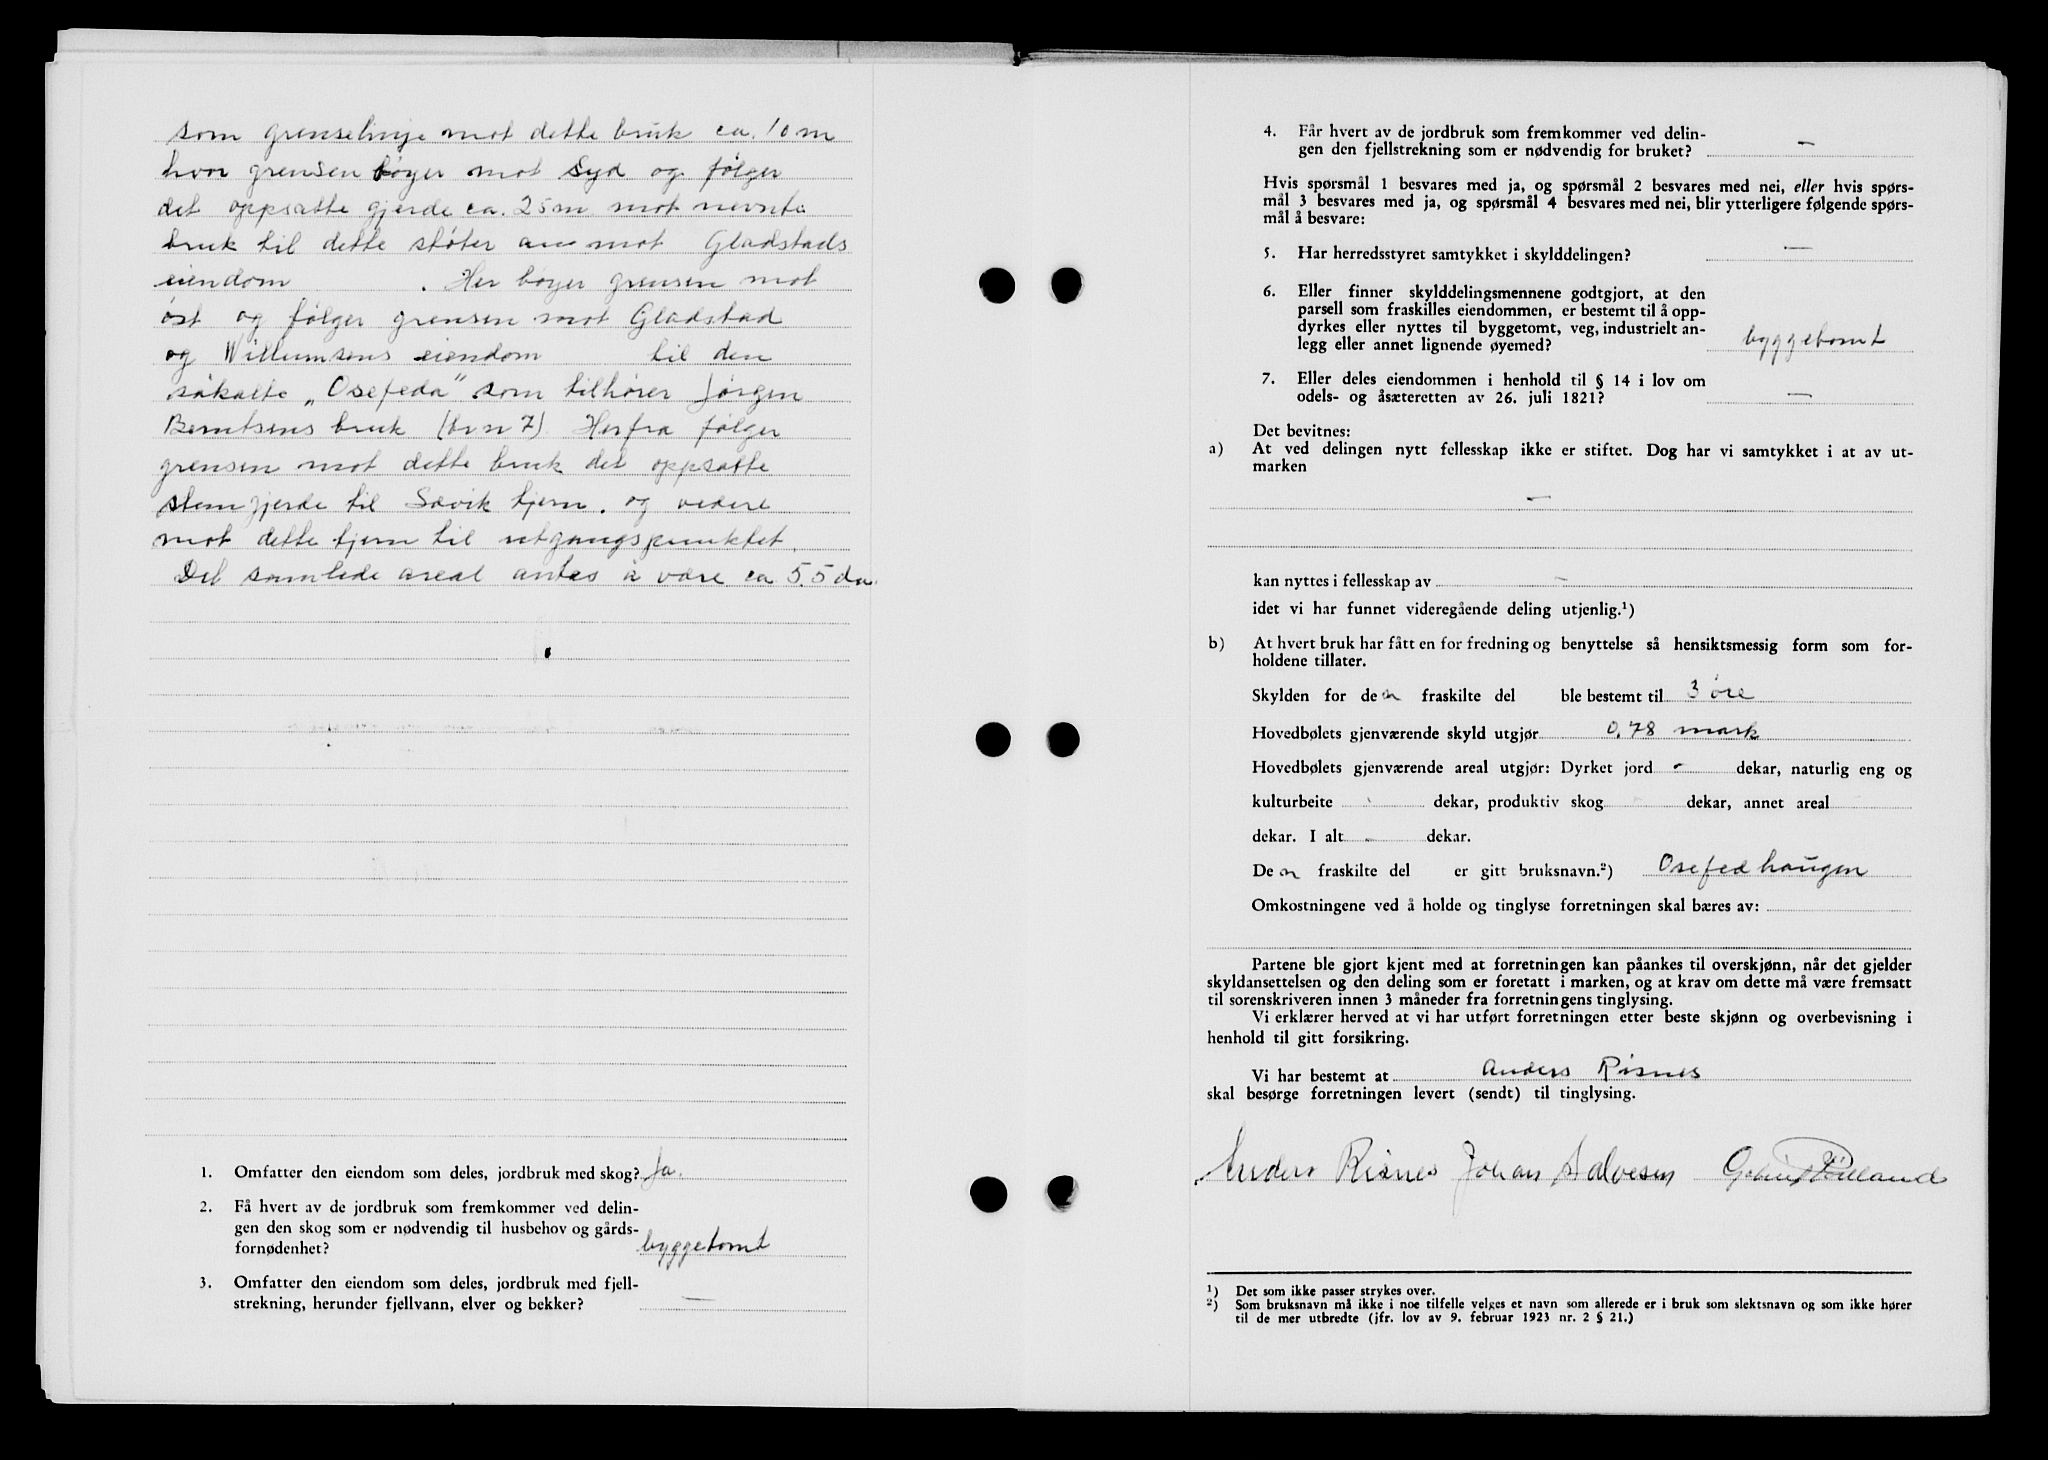 som grenselinje mot dette bruk ca. 10 m
hvor grensen bøyer mot syd og følger
det oppsatte gjerde ca. 25 m mot nevnte
bruk til dette støter an mot Gladstads
eiendom . Her bøyer grensen mot
øst og følger grensen mot Gladstad
og Willumsens eiendom til den
såkalte „Osefeda" som tilhører Jørgen
Berntsens bruk (br n 7) Herfra følger
grensen mot dette bruk det oppsatte
stengjerde til Sævik tjern. og videre
mot dette tjern til utgangspunktet.
Det samlede areal antas å være ca 5.5 da.
1. Omfatter den eiendom som deles, jordbruk med skog? Ja.
2. Få hvert av de jordbruk som fremkommer ved delin-
gen den skog som er nødvendig til husbehov og gårds-
fornødenhet? byggetomt
3. Omfatter den eiendom som deles, jordbruk med fjell-
strekning, herunder fjellvann, elver og bekker? —
4. Får hvert av de jordbruk som fremkommer ved delin-
gen den fjellstrekning som er nødvendig for bruket? —
Hvis spørsmål 1 besvares med ja, og spørsmål 2 besvares med nei, eller hvis spørs-
mål 3 besvares med ja, og spørsmål 4 besvares med nei, blir ytterligere følgende spørs-
mål å besvare:
5. Har herredsstyret samtykket i skylddelingen? —
6. Eller finner skylddelingsmennene godtgjort, at den
parsell som fraskilles eiendommen, er bestemt til å opp-
dyrkes eller nyttes til byggetomt, veg, industrielt an-
legg eller annet lignende øyemed? byggetomt
7. Eller deles eiendommen i henhold til § 14 i lov om
odels- og åsæteretten av 26. juli 1821? —
Det bevitnes:
a) At ved delingen nytt fellesskap ikke er stiftet. Dog har vi samtykket i at av ut-
marken
—
kan nyttes i fellesskap av —
idet vi har funnet videregående deling utjenlig.¹)
b) At hvert bruk har fått en for fredning og benyttelse så hensiktsmessig form som for-
holdene tillater.
Skylden for den fraskilte del ble bestemt til 3 øre
Hovedbølets gjenværende skyld utgjør 0,78 mark
Hovedbølets gjenværende areal utgjør: Dyrket jord - dekar, naturlig eng og
kulturbeite dekar, produktiv skog - dekar, annet areal
dekar. I alt - dekar.
Den fraskilte del er gitt bruksnavn.²) Osefedhaugen
Omkostningene ved å holde og tinglyse forretningen skal bæres av:
Partene ble gjort kjent med at forretningen kan påankes til overskjønn, når det gjelder
skyldansettelsen og den deling som er foretatt i marken, og at krav om dette må være fremsatt
til sorenskriveren innen 3 måneder fra forretningens tinglysing.
Vi erklærer herved at vi har utført forretningen etter beste skjønn og overbevisning i
henhold til gitt forsikring.
Vi har bestemt at Anders Risnes
skal besørge forretningen levert (sendt) til tinglysing.
Anders Risnes Johan Salvesen
¹) Det som ikke passer strykes over.
²) Som bruksnavn må ikke i noe tilfelle velges et navn som allerede er i bruk som slektsnavn og som ikke hører
til de mer utbredte (jfr. lov av 9. februar 1923 nr. 2 § 21.)